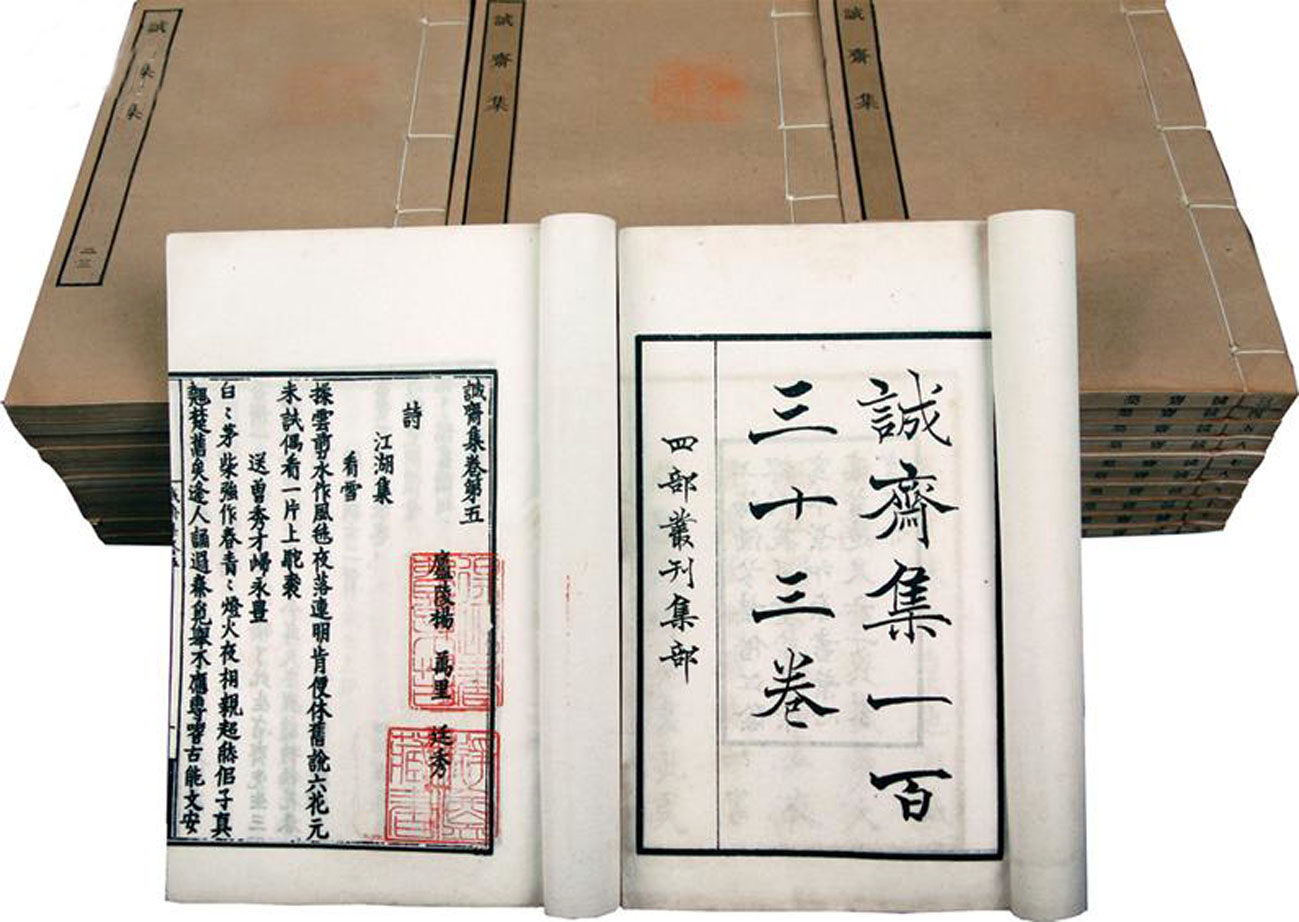 誠齋集
誠齋集
誠齋集一百
三十三卷
四部叢刊集部
誠齋集卷第五
廬陵楊 萬里 廷秀
詩
江湖集
看雪
揉雲剪水作風毬夜落連明肯便休舊說六花元
未試偶看一片上駝裘
送曾秀才歸永豐
白:茅柴強作春青:燈火夜相親超然佀子真
翹楚舊矣逢人誦過秦舉不應專嗜古能文安